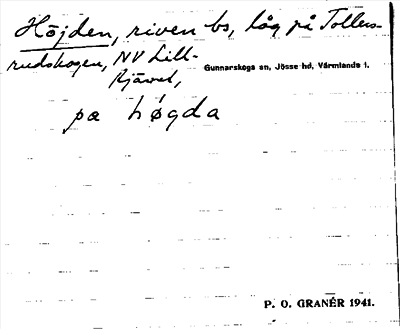 Höjden, riven bs, låg på Tollers-
rudskogen, NV Lill-
Kjäret,
Gunnarskogs sn, Jösse hd, Värmlands l.
pa høgda
P. O. GRANÉR 1941.